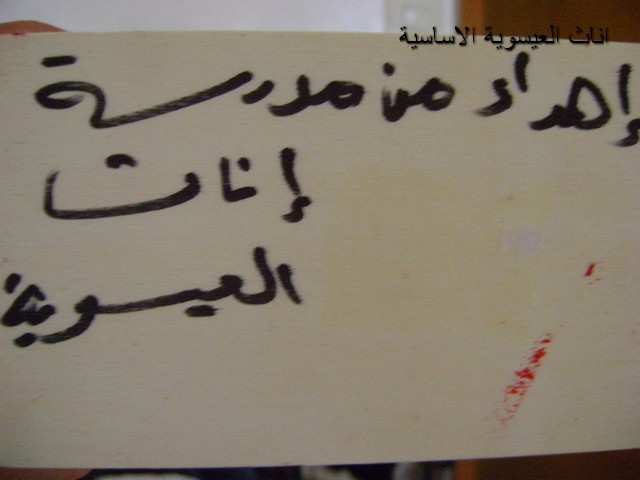 اناث العيسوية الاساسية
إهداء من مدرسة
إناث
العيسوية